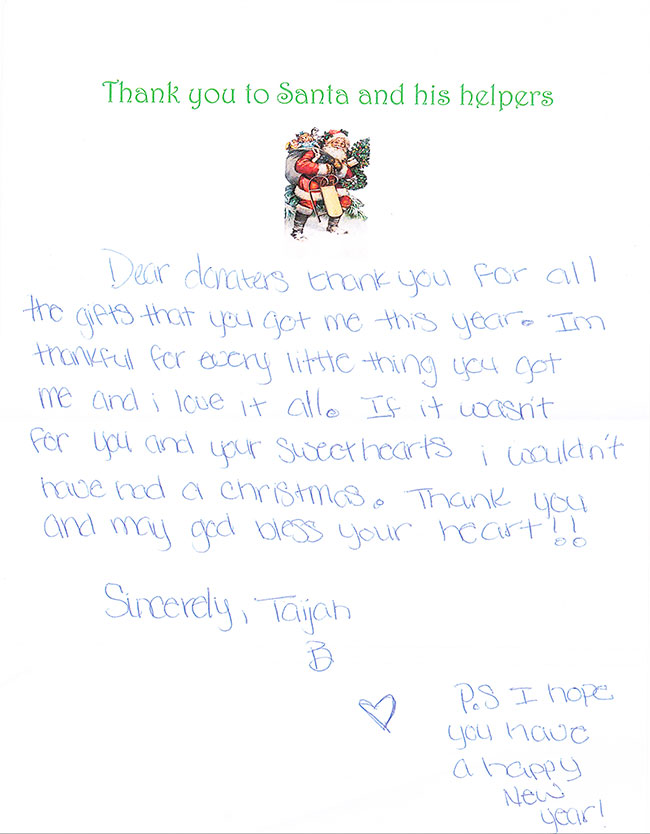 Thank you to Santa and his helpers
Dear donaters thank you for all
the gifts that you got me this year. Im
thankful for every little thing you got
me and i love it all. If it wasn't
for you and your sweethearts i wouldn't
have had a christmas. Thank you
and may god bless your heart!!
Sincerely, Taijah
B
P.S I hope
you have
a happy
New
year!